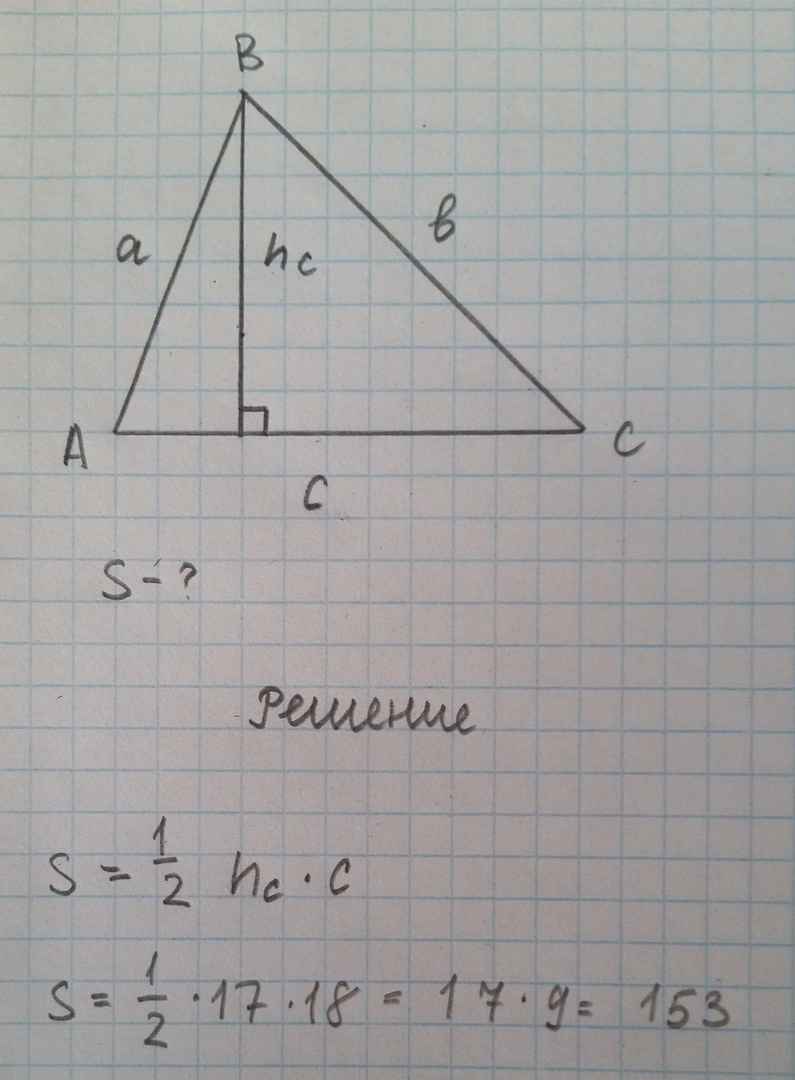 B
a hc в
A C
c
S - ?
Решение
S = 1/2 hc · c
S = 1/2 · 17 · 18 = 17 · 9 = 153